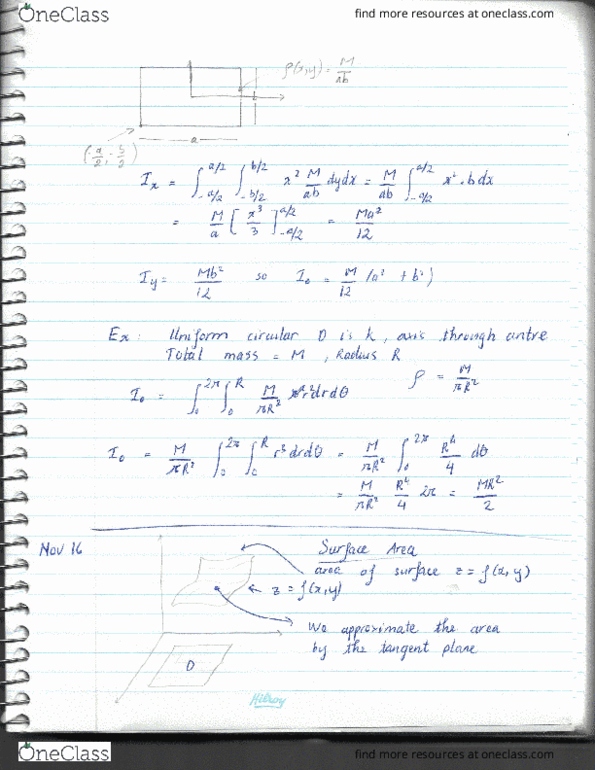 OneClass
find more resources at oneclass.com
ρ(x,y) = M/ab
a
(-a/2, -b/2)
I_x = ∫_{-a/2}^{a/2} ∫_{-b/2}^{b/2} x² M/ab dydx = M/ab ∫_{-a/2}^{a/2} x² · b dx
= M/a [x³/3]_{-a/2}^{a/2} = Ma²/12
I_y = Mb²/12 so I_o = M/12 (a² + b²)
Ex: Uniform circular D is k, axis through antre
Total mass = M, Radius R
ρ = M/πR²
I_o = ∫_0^{2π} ∫_0^R M/πR² r² r dr dθ
I_o = M/πR² ∫_0^{2π} ∫_0^R r³ dr dθ = M/πR² ∫_0^{2π} R⁴/4 dθ
= M/πR² R⁴/4 2π = MR²/2
Nov 16
Surface Area
area of surface z = f(x,y)
z = f(x,y)
We approximate the area
by the tangent plane
D
Hilroy
OneClass
find more resources at oneclass.com